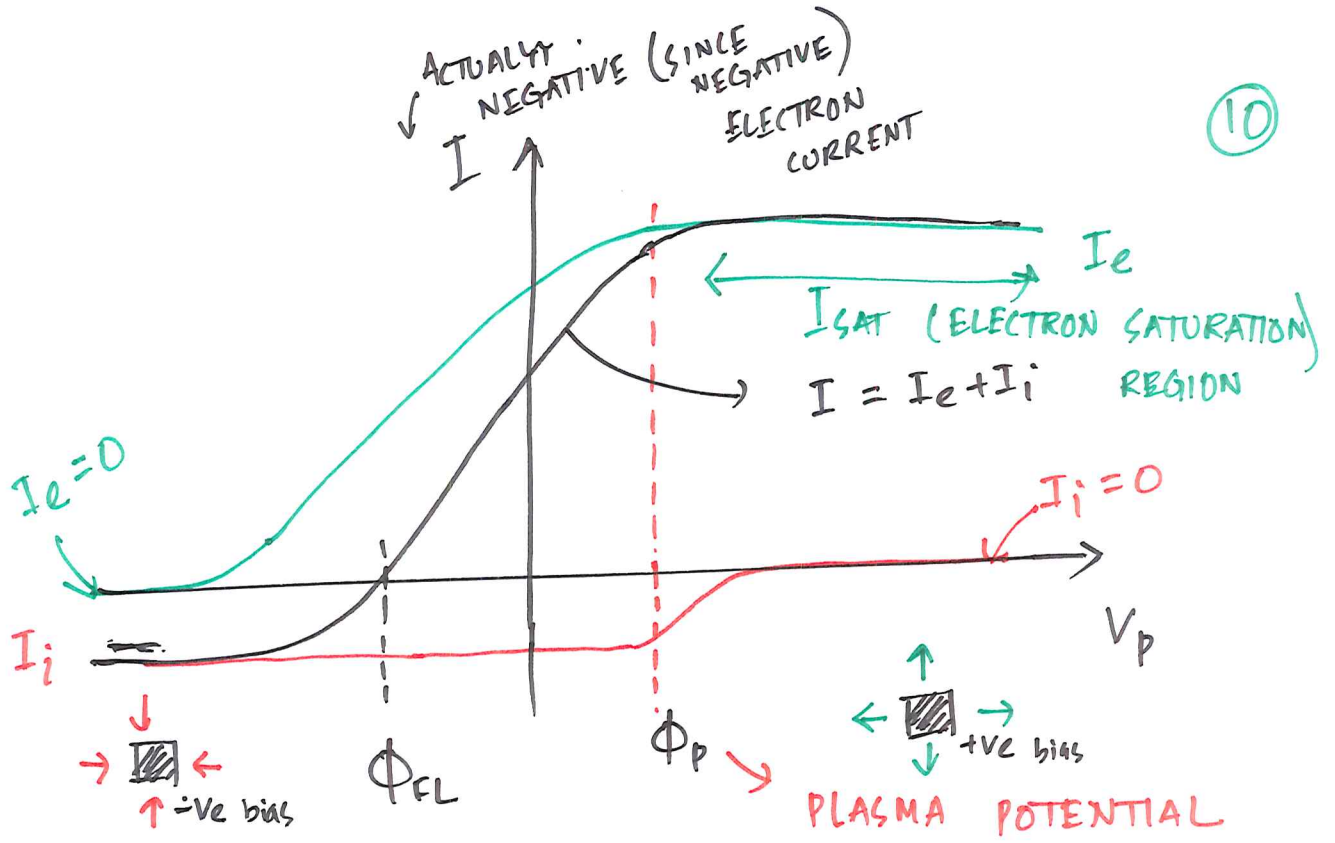 ACTUALLY
NEGATIVE (SINCE
NEGATIVE)
ELECTRON
CURRENT
10
I
Ie
ISAT (ELECTRON SATURATION)
REGION
I = Ie + Ii
Ie = 0
Ii = 0
Ii
Vp
-ve bias
ΦFL
Φp
+ve bias
PLASMA POTENTIAL